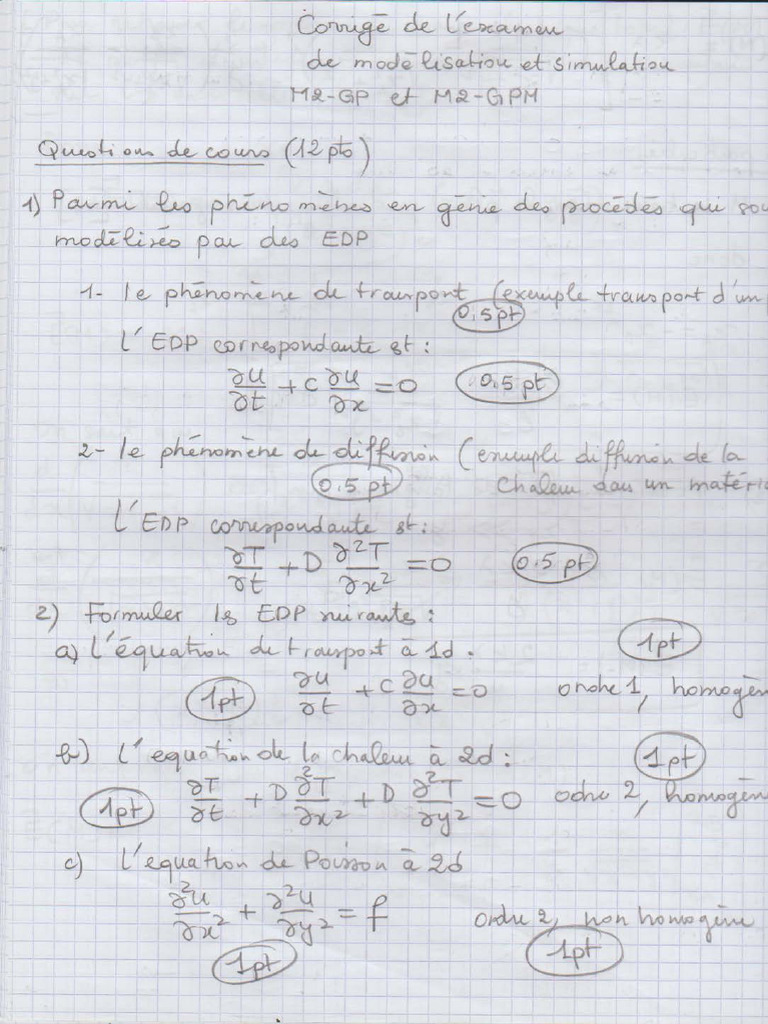 Corrigé de l'examen
de modélisation et simulation
M2-GP et M2-GPM
Questions de cours (12 pts)
1) Parmi les phénomènes en génie des procédés qui so
modélisés par des EDP
1- le phénomène de transport (exemple transport d'un
0.5pt
L'EDP correspondante st :
∂U/∂t + C ∂U/∂x = 0 0.5 pt
2- le phénomène de diffusion (exemple diffusion de la
0.5 pt chaleur dans un matéri
L'EDP correspondante st :
∂T/∂t + D ∂²T/∂x² = 0 0.5 pt
2) Formuler ls EDP suivantes :
a) L'équation de transport à 1d . 1pt
1pt ∂U/∂t + C ∂U/∂x = 0 ordre 1, homogèn
b) L'equation de la chaleur à 2d : 1pt
1pt ∂T/∂t + D ∂²T/∂x² + D ∂²T/∂y² = 0 ordre 2, homogèn
c) L'équation de Poisson à 2d
∂²U/∂x² + ∂²U/∂y² = f ordre 2, non homogène
1pt 1pt